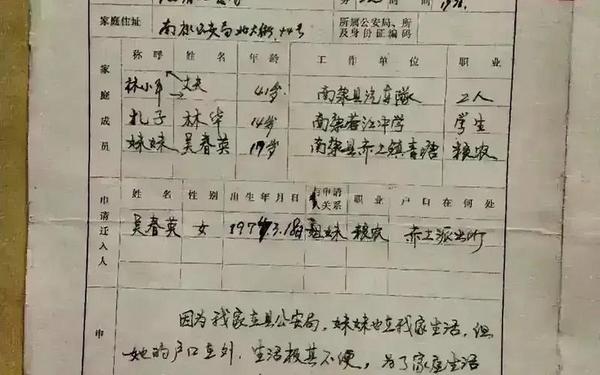 家庭住址 南康公安局北大街44号 所属公安局、所
及身份证编码
家庭成员 称呼 姓名 年龄 工作单位 职业
林小平 丈夫 41岁 南康县汽车队 工人
孔子 林华 14岁 南康蓉江中学 学生
妹妹 吴春英 19岁 南康县赤土镇青塘 粮农
申请迁入人 姓名 性别 出生年月日 与申请人关系 职业 户口在何处
吴春英 女 197 3.18 姐妹 粮农 赤土派出所
申 因为我家在县公安局,妹妹也在我家生活,但
她的户口在外,生活极其不便,为了家庭生活